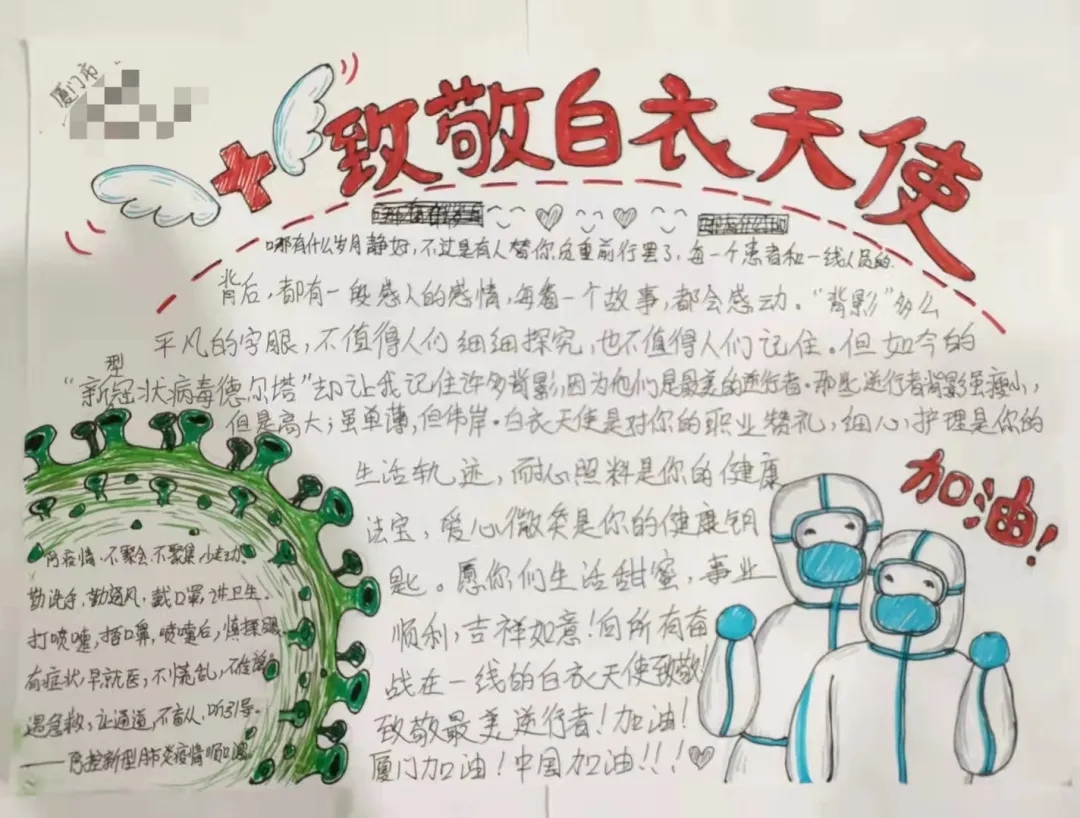 厦门市
致敬白衣天使
哪有什么岁月静好，不过是有人替你负重前行罢了，每一个患者和一线人员的
背后，都有一段感人的感情，每看一个故事，都会感动。“背影”多么
平凡的字眼，不值得人们细细探究，也不值得人们记住。但如今的
“新型冠状病毒德尔塔”却让我记住许多背影，因为他们是最美的逆行者。那些逆行者背影虽瘦小，
但是高大；虽单薄，但伟岸。白衣天使是对你的职业赞礼，细心护理是你的
生活轨迹，而耐心照料是你的健康
法宝，爱心微笑是你的健康钥
匙。愿你们生活甜蜜，事业
顺利，吉祥如意！向所有奋
战在一线的白衣天使致敬！
致敬最美逆行者！加油！
厦门加油！中国加油！！！
加油！
防疫情，不聚会，不聚集少走动。
勤洗手，勤通风，戴口罩，讲卫生。
打喷嚏，捂口鼻，喷嚏后，慎揉眼。
有症状，早就医，不慌乱，
遇急救，让通道，不盲从，听引导。
——防控新型肺炎疫情顺口溜